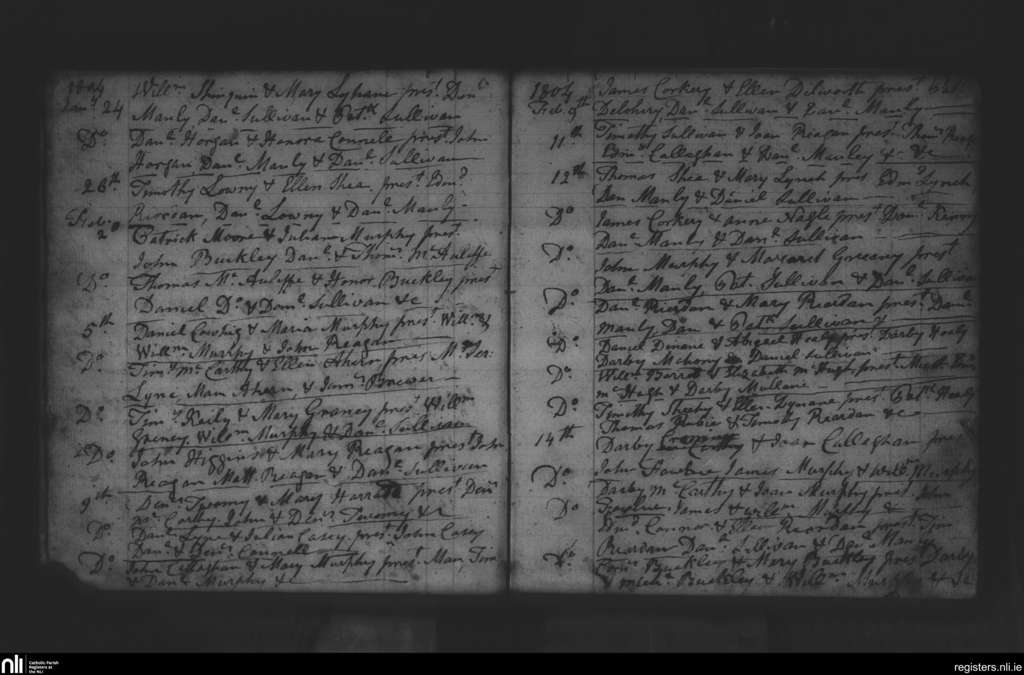 1804 Willm Shinquin & Mary Lyhane prest Denl
Jany 24 Manly Danl Sullivan & Patk Sullivan
Do Danl Horgan & Honora Connell prest John
Horgan, Danl Manly & Danl Sullivan
26th Timothy Lowny & Ellen Shea prest Edmd
Riordan, Danl Lowny & Danl Manly
Feby 2d Patrick Moore & Julian Murphy prest
John Buckley Danl & Thoms McAuliffe
Do Thomas McAuliffe & Honor Buckley prest
Daniel Do & Danl Sullivan &c
5th Daniel & Maria Murphy prest Willm &
Willm Murphy & John Reagan
Do Timy McCarthy & Ellen Ahern prest Mr Jer:
Lyne, Mau Ahern, & Jams Brewer
Do Timy Reily & Mary Graney prest Willm
Greney, Willm Murphy & Danl Sullivan
Do John Higgins & Mary Reagan prest John
Reagan Matt Reagan & Danl Sullivan
9th Denis Twomy & Mary prest Denis
McCarthy John & Denis Twomy &c
Do Danl Lyne & Julian Casey prest John Casey
Danl & Connell
Do John Callaghan & Mary Murphy prest Mau Tim
& Danl Murphy &
1804 James Corkery & Ellen Dilworth prest Pat
Feb. 9th Delohery Danl Sullivan & Danl Manly
11th Timothy Sullivan & Joan Reagan prest
Edmd Callaghan & Danl Manley & &c
12th Thomas Shea & Mary Lynch prest Edmd Lynch
Den Manly & Daniel Sullivan
Do James Corkery & Anne Nagle prest
Danl Manly & Danl Sullivan
Do John Murphy & Margaret Greaney prest
Danl Manly Pat Sullivan & Danl Sullivan
Do Danl Riordan & Mary Riordan prest Danl
Manly Dan & Patk Sullivan &
Do Daniel Dinane & Abigael Healy prest Darby Healy
Darby Mahony Daniel Sullivan
Do Willm Barrett & Elizabeth McHugh prest
McHugh & Derby Mullane
Do Timothy Sheehy & Ellen prest Patk Healy
Thomas & Timothy Riordan &c
14th Darby & Joan Callaghan prest
John James Murphy & Willm Murphy
Do Darby McCarthy & Joan Murphy prest John
James & Willm Murphy &
Do Edmd Connor & Ellen Riordan prest Tim
Riordan Danl Sullivan & Denl Manly
Do Buckley & Mary Buckley prest Darby
& Buckley & Willm Murphy & &c
nli
Catholic Parish
Registers at
the NLI
registers.nli.ie